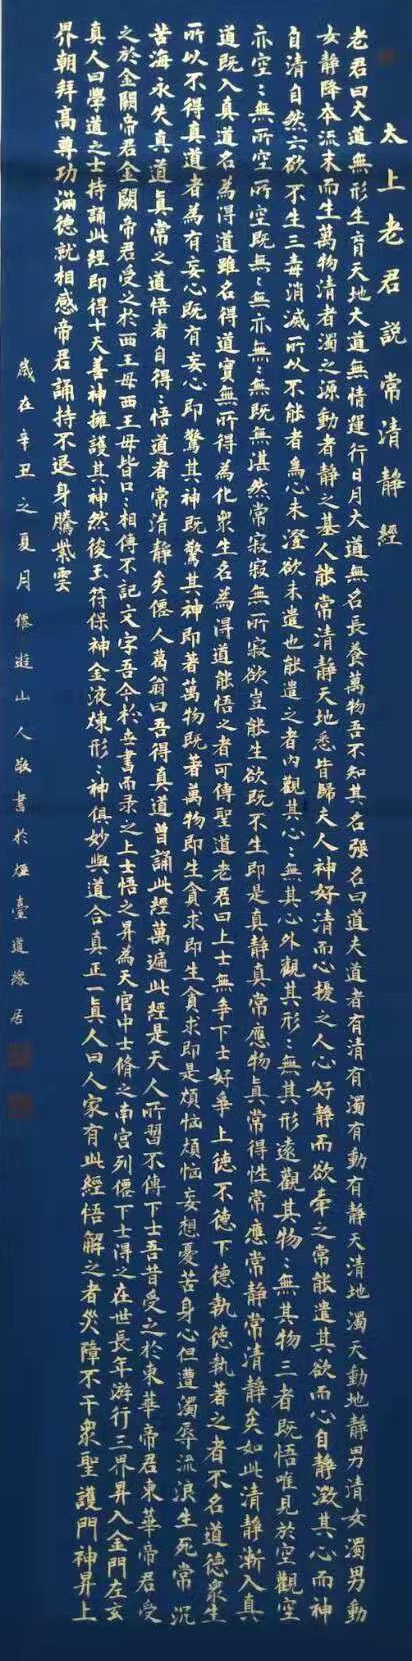 太上老君說常清靜經
老君曰大道無形生育天地大道無情運行日月大道無名長養萬物吾不知其名強名曰道夫道者有清有濁有動有靜天清地濁天動地靜男清女濁男動
女靜降本流末而生萬物清者濁之源動者靜之基人能常清靜天地悉皆歸夫人神好清而心擾之人心好靜而欲牽之常能遣其欲而心自靜澂其心而神
自清自然六欲不生三毒消滅所以不能者為心未澄欲未遣也能遣之者內觀其心〻無其心外觀其形〻無其形遠觀其物〻無其物三者既悟唯見於空觀空
亦空〻無所空所空既無〻無亦無〻無既無湛然常寂寂無所寂欲豈能生欲既不生即是真靜真常應物真常得性常應常靜常清靜矣如此清靜漸入真
道既入真道名為得道雖名得道實無所得為化衆生名為得道能悟之者可傳聖道老君曰上士無爭下士好爭上德不德下德執德執著之者不名道德衆生
所以不得真道者為有妄心既有妄心即驚其神既驚其神即著萬物既著萬物即生貪求即生貪求即是煩惱煩惱妄想憂苦身心但遭濁辱流浪生死常沉
苦海永失真道真常之道悟者自得〻悟道者常清靜矣僊人葛翁曰吾得真道曾誦此經萬遍此經是天人所習不傳下士吾昔受之於東華帝君東華帝君受
之於金闕帝君金闕帝君受之於西王母西王母皆口〻相傳不記文字吾今於世書而录之上士悟之昇為天官中士脩之南宮列僊下士得之在世長年游行三界昇入金門左玄
真人曰學道之士持誦此經即得十天善神擁護其神然後玉符保神金液煉形〻神俱妙與道合真正一真人曰人家有此經悟解之者災障不干衆聖護門神昇上
界朝拜高尊功滿德就相感帝君誦持不退身騰紫雲
歲在辛丑之夏月僊遊山人敬書於煙臺道緣居